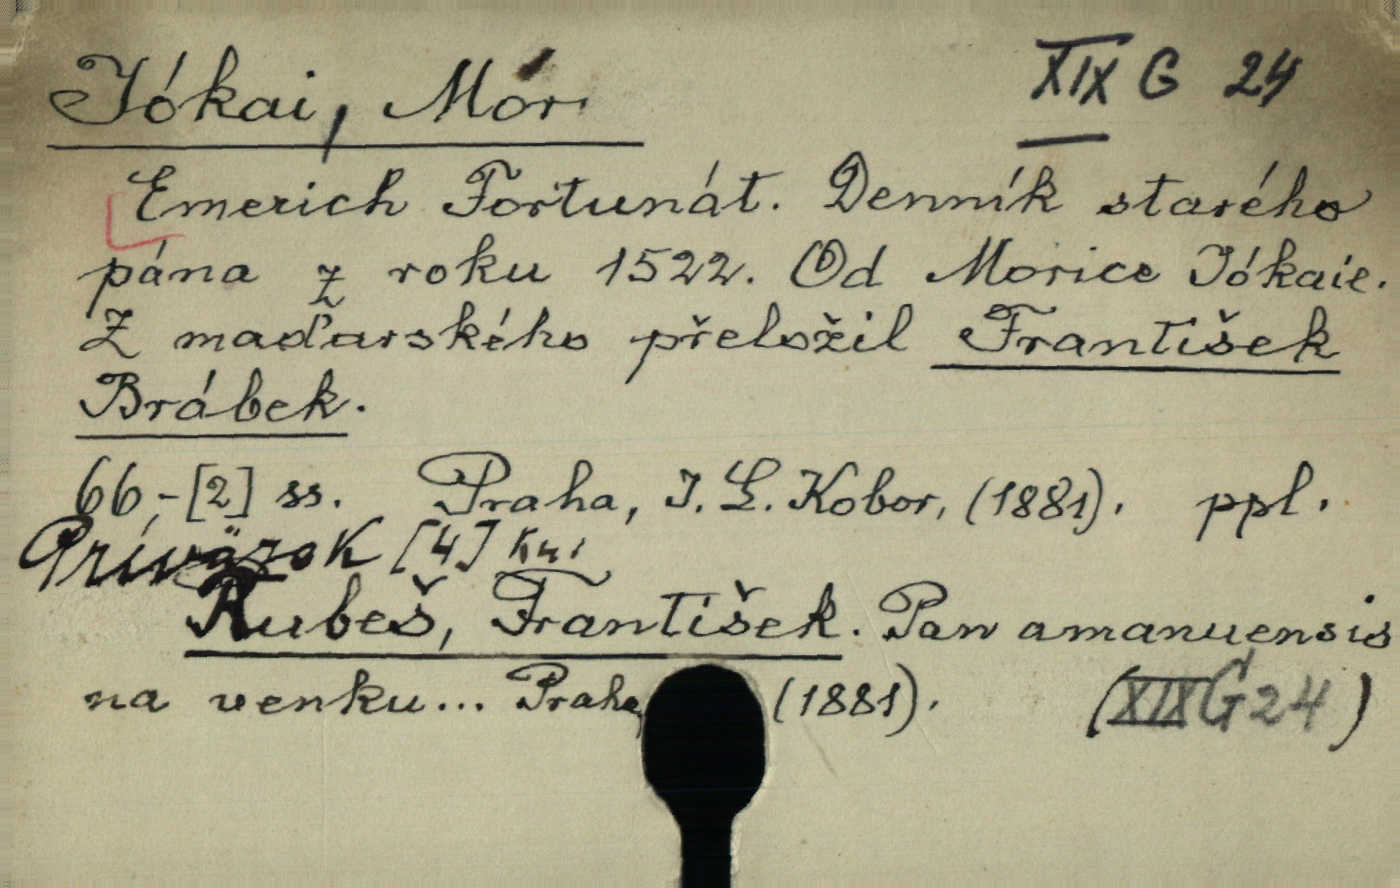 Jókai, Mór
XIX G 24
Emerich Fortunát. Denník starého
pána z roku 1522. Od Morice Jókaie.
Z maďarského přeložil František
Brábek.
66,-[2] ss. Praha, I. L. Kobor, (1881). ppl.
Prívӓzok [4] kni
Rubeš, František. Pan amanuensis
na venku... Praha, (1881). (XIX G 24)